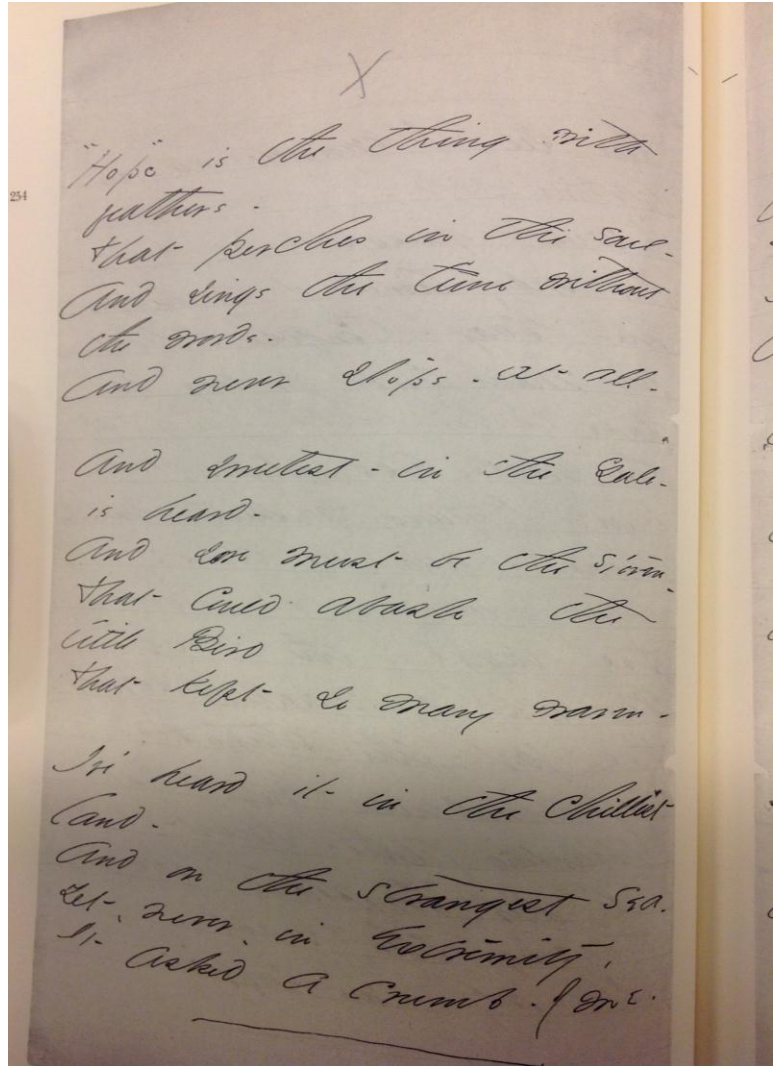 X
254
"Hope" is the thing with
feathers -
That perches in the soul -
And sings the tune without
the words -
And never stops - at all -
And sweetest - in the Gale -
is heard -
And sore must be the storm -
That could abash the
little Bird
That kept so many warm -
I've heard it in the chillest
land -
And on the strangest Sea -
Yet, never, in Extremity,
It asked a crumb - of me.